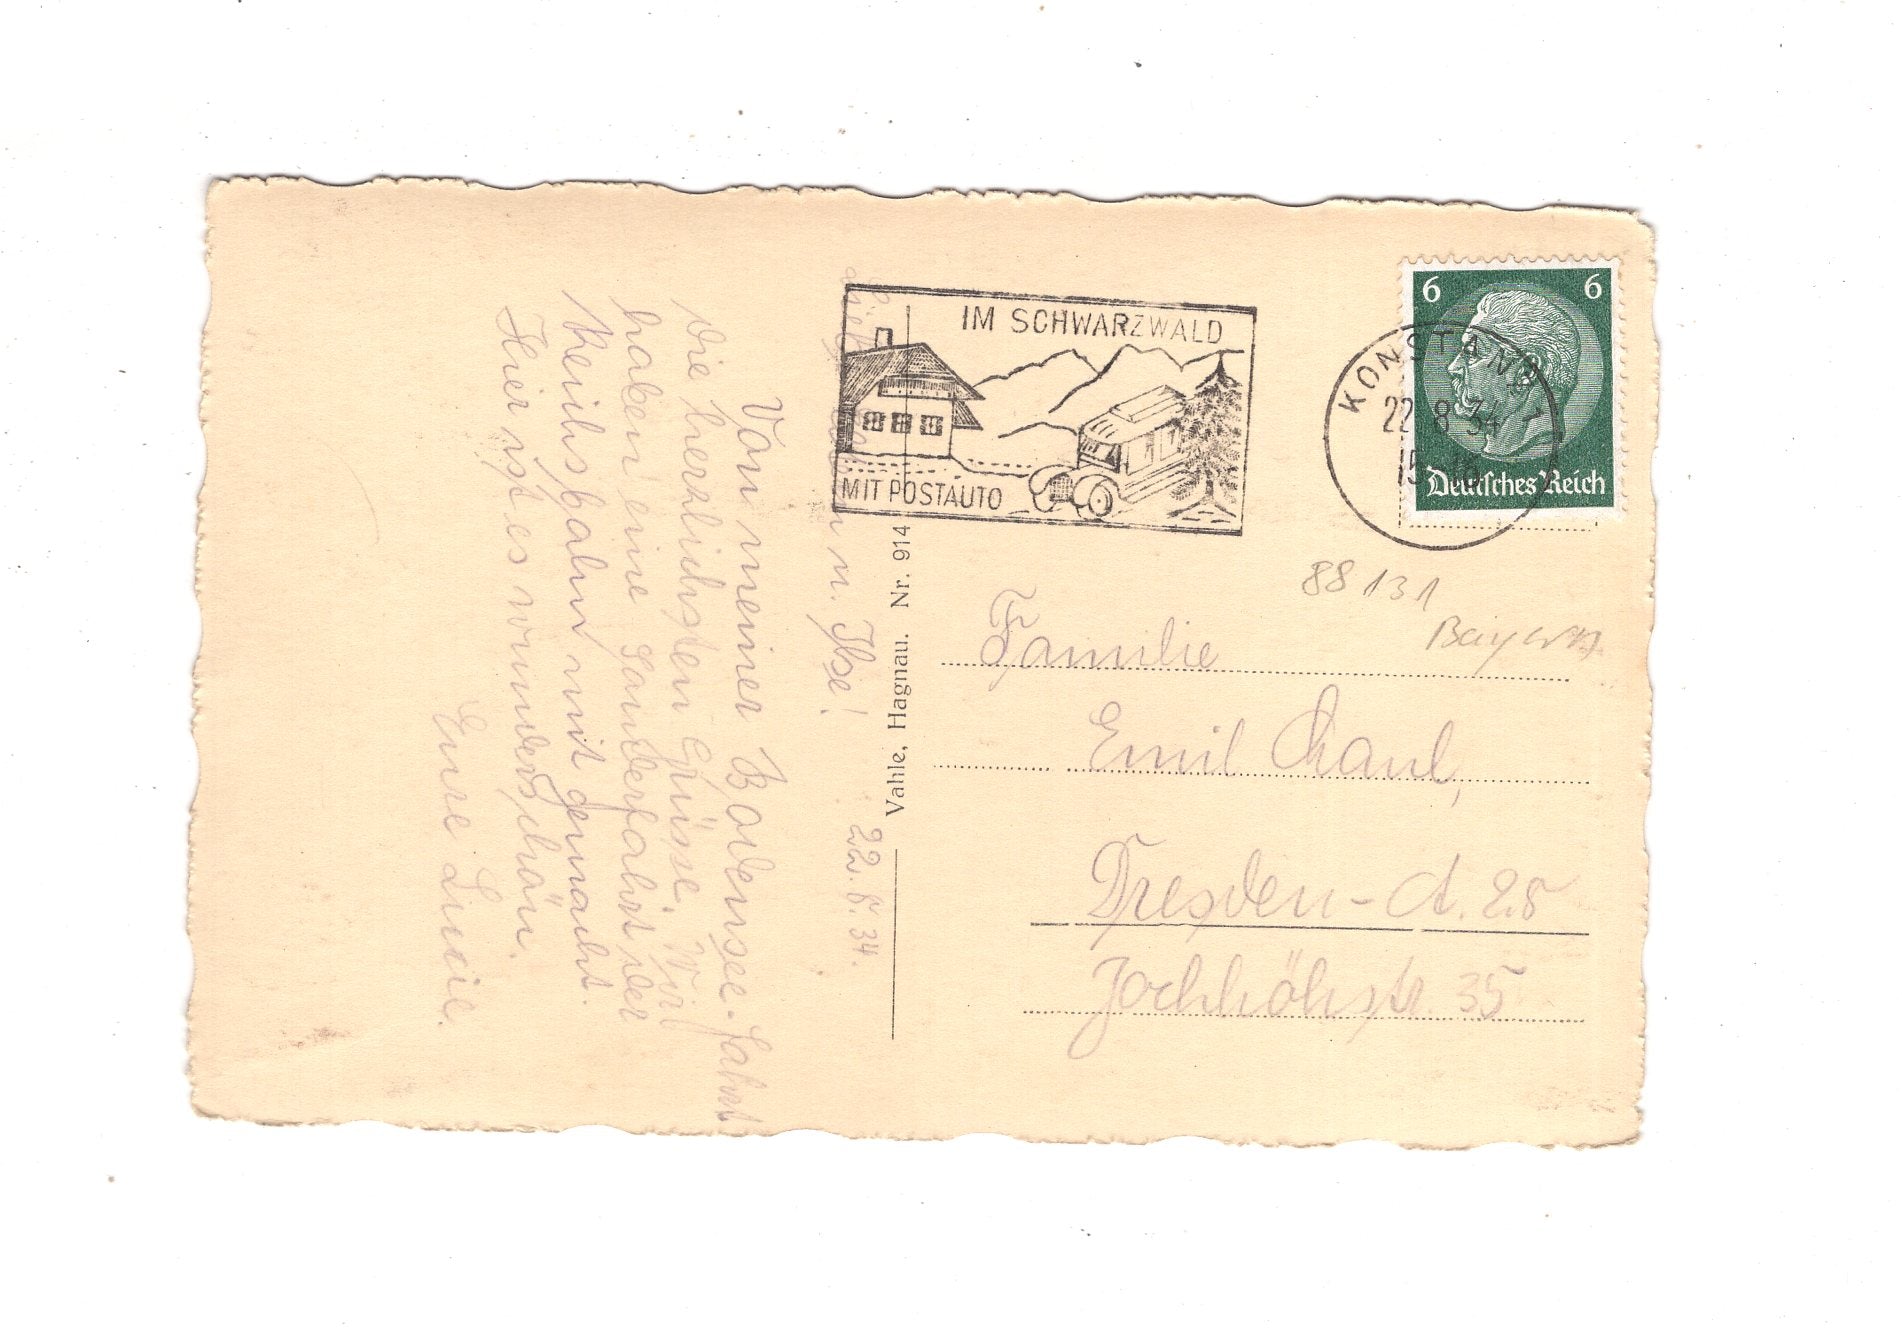 IM SCHWARZWALD
MIT POSTAUTO
6 6
Deutsches Reich
KONSTANZ 1
22 8 34
15-16
88131
Bayern
Vahle, Hagnau. Nr. 914
22. 8. 34.
n. Ilse!
Von meiner Bodensee-Fahrt
die herzlichsten Grüsse. Wir
haben eine Sonderfahrt der
Reichsbahn mit gemacht.
Hier ist es wunderschön.
Eure
Familie
Emil
Dresden-A. 28
35